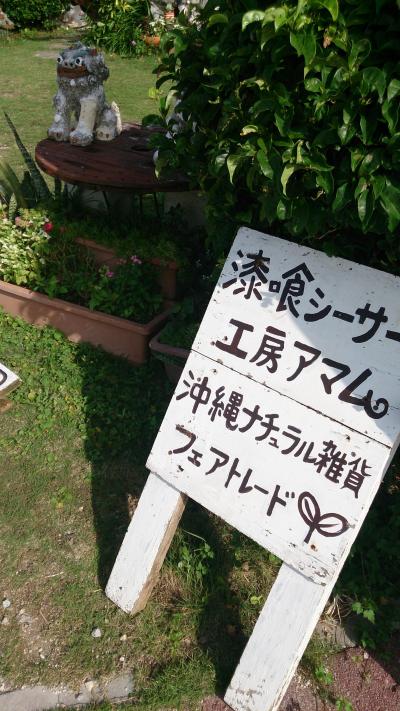 漆喰シーサー
工房アマム
沖縄ナチュラル雑貨
フェアトレード